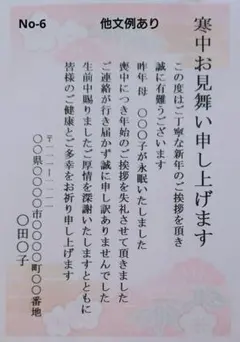 No-6
他文例あり
寒中お見舞い申し上げます
この度はご丁寧な新年のご挨拶を頂き
誠に有難うございます
昨年 母 〇〇〇子が永眠いたしました
喪中につき年始のご挨拶を失礼させて頂きました
ご連絡が行き届かず誠に申し訳ありませんでした
生前中賜りましたご厚情を深謝いたしますとともに
皆様のご健康とご多幸をお祈り申し上げます
〒一一一-一一一一
〇〇県〇〇〇〇市〇〇〇〇町〇〇番地
〇田〇子